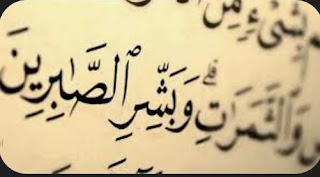 بِشَىْءٍ مِّنَ
وَٱلثَّمَرَٰتِ ۗ وَبَشِّرِ ٱلصَّـٰبِرِينَ